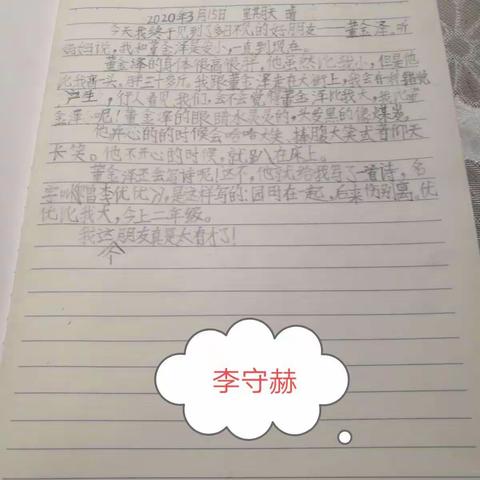 2020年3月15日 星期天 晴
今天我终于见到了好久不见的好朋友——董金泽,听
妈妈说,我和董金泽是发小,一直到现在。
董金泽的身体很高很胖,他虽然比我小,但是他
比我高一头,胖三十多斤。我跟董金泽走在大街上,我会有错觉
产生,行人看见我们,会不会觉得董金泽比我大,我比董
金泽小呢!董金泽的眼睛水灵灵的,头发黑的像煤炭。
他开心的的时候会哈哈大笑、捧腹大笑或者仰天
长笑。他不开心的时候,就趴在床上。
董金泽还会写诗呢!这不,他就给我写了一首诗,名
字叫《李优优》,是这样写的:园田在一起,后来伤别离。优
优比我大,今上二年级。
我这个朋友真是太有才了!
李守赫